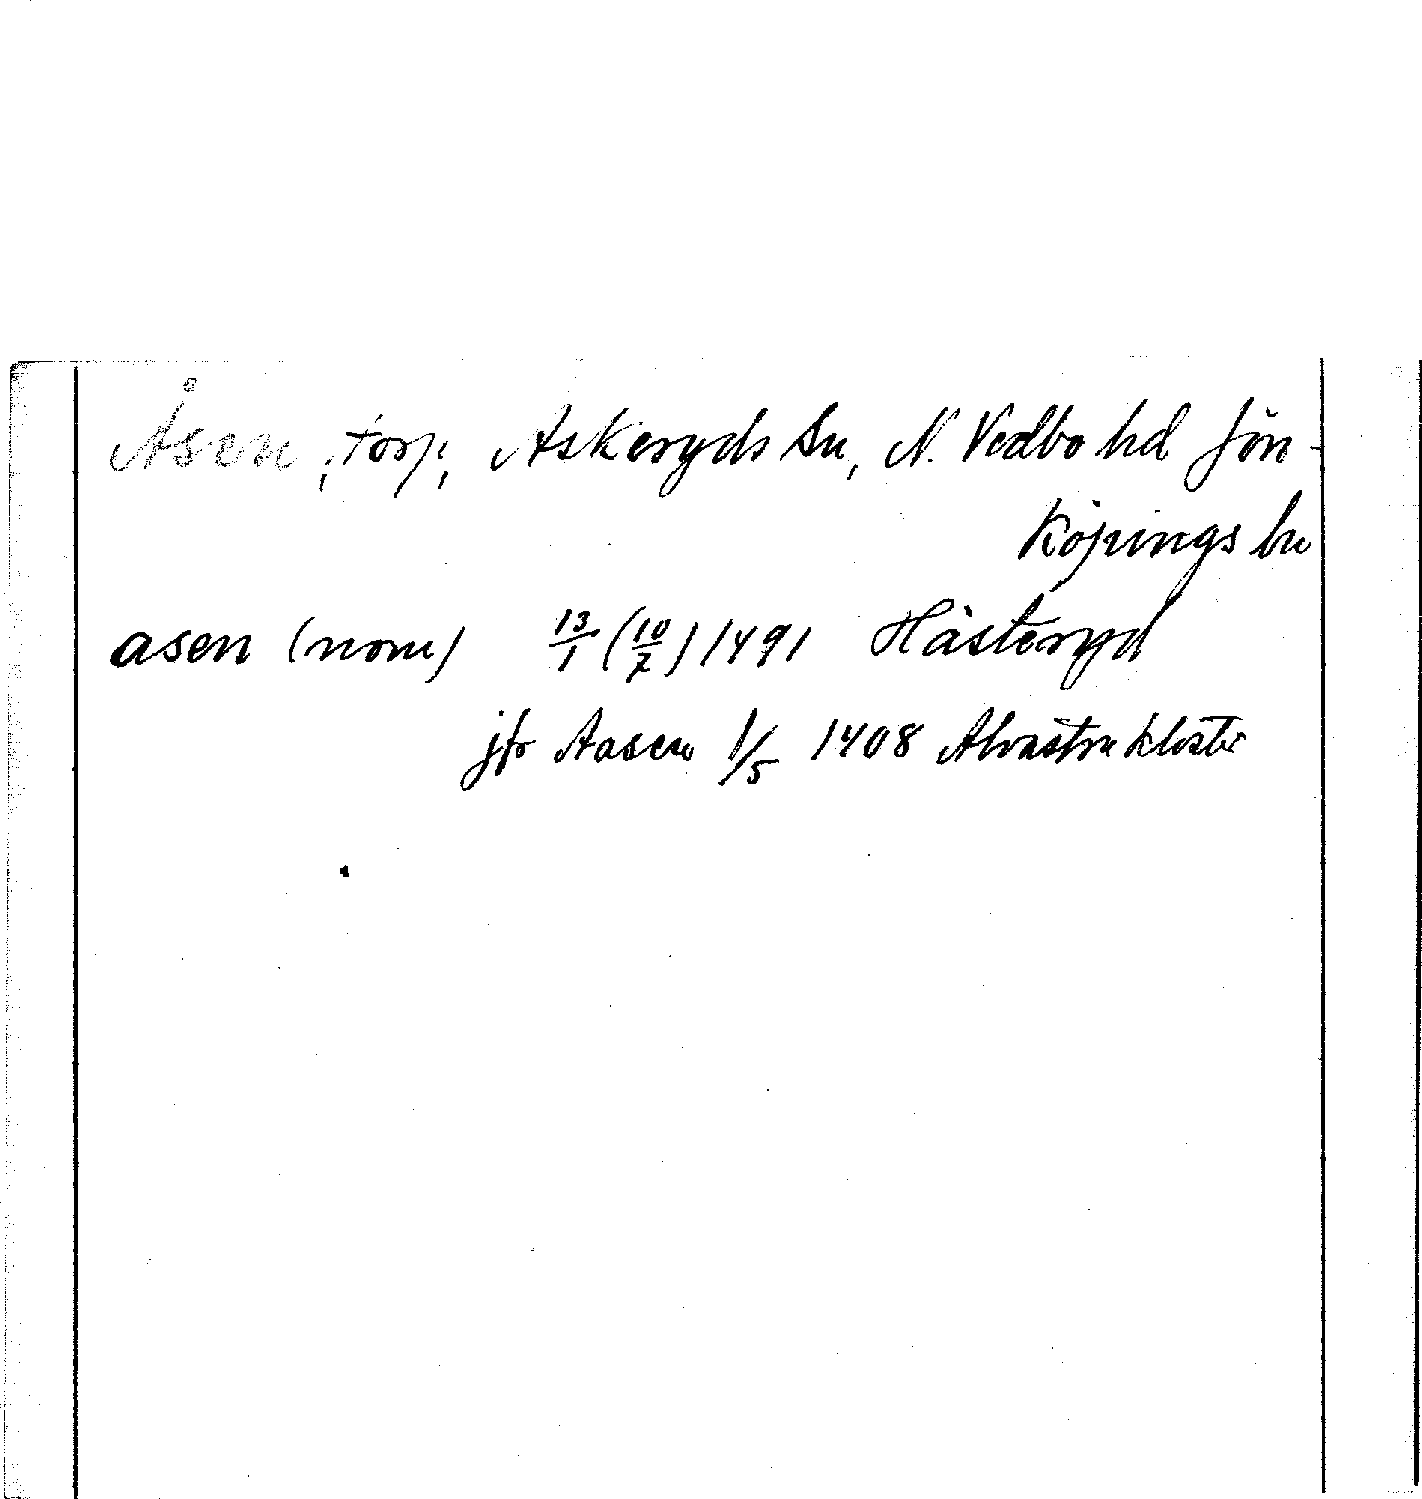 Åsen, torp, Askeryds sn, N. Vedbo hd Jön-
köpings län
asen (nom) 13/1 (10/2) 1491 Hästeryd
jfr Aasen 1/5 1408 Alvastra kloster